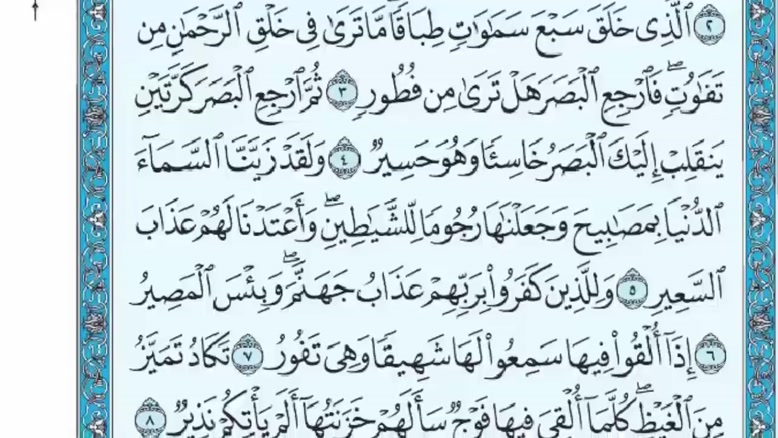 ٢ ٱلَّذِى خَلَقَ سَبْعَ سَمَٰوَٰتٍ طِبَاقًا مَّا تَرَىٰ فِى خَلْقِ ٱلرَّحْمَٰنِ مِن
تَفَٰوُتٍ ۖ فَٱرْجِعِ ٱلْبَصَرَ هَلْ تَرَىٰ مِن فُطُورٍ ٣ ثُمَّ ٱرْجِعِ ٱلْبَصَرَ كَرَّتَيْنِ
يَنقَلِبْ إِلَيْكَ ٱلْبَصَرُ خَاسِئًا وَهُوَ حَسِيرٌ ٤ وَلَقَدْ زَيَّنَّا ٱلسَّمَآءَ
ٱلدُّنْيَا بِمَصَٰبِيحَ وَجَعَلْنَٰهَا رُجُومًا لِّلشَّيَٰطِينِ ۖ وَأَعْتَدْنَا لَهُمْ عَذَابَ
ٱلسَّعِيرِ ٥ وَلِلَّذِينَ كَفَرُوا۟ بِرَبِّهِمْ عَذَابُ جَهَنَّمَ ۖ وَبِئْسَ ٱلْمَصِيرُ
٦ إِذَآ أُلْقُوا۟ فِيهَا سَمِعُوا۟ لَهَا شَهِيقًا وَهِىَ تَفُورُ ٧ تَكَادُ تَمَيَّزُ
مِنَ ٱلْغَيْظِ ۖ كُلَّمَآ أُلْقِىَ فِيهَا فَوْجٌ سَأَلَهُمْ خَزَنَتُهَآ أَلَمْ يَأْتِكُمْ نَذِيرٌ ٨